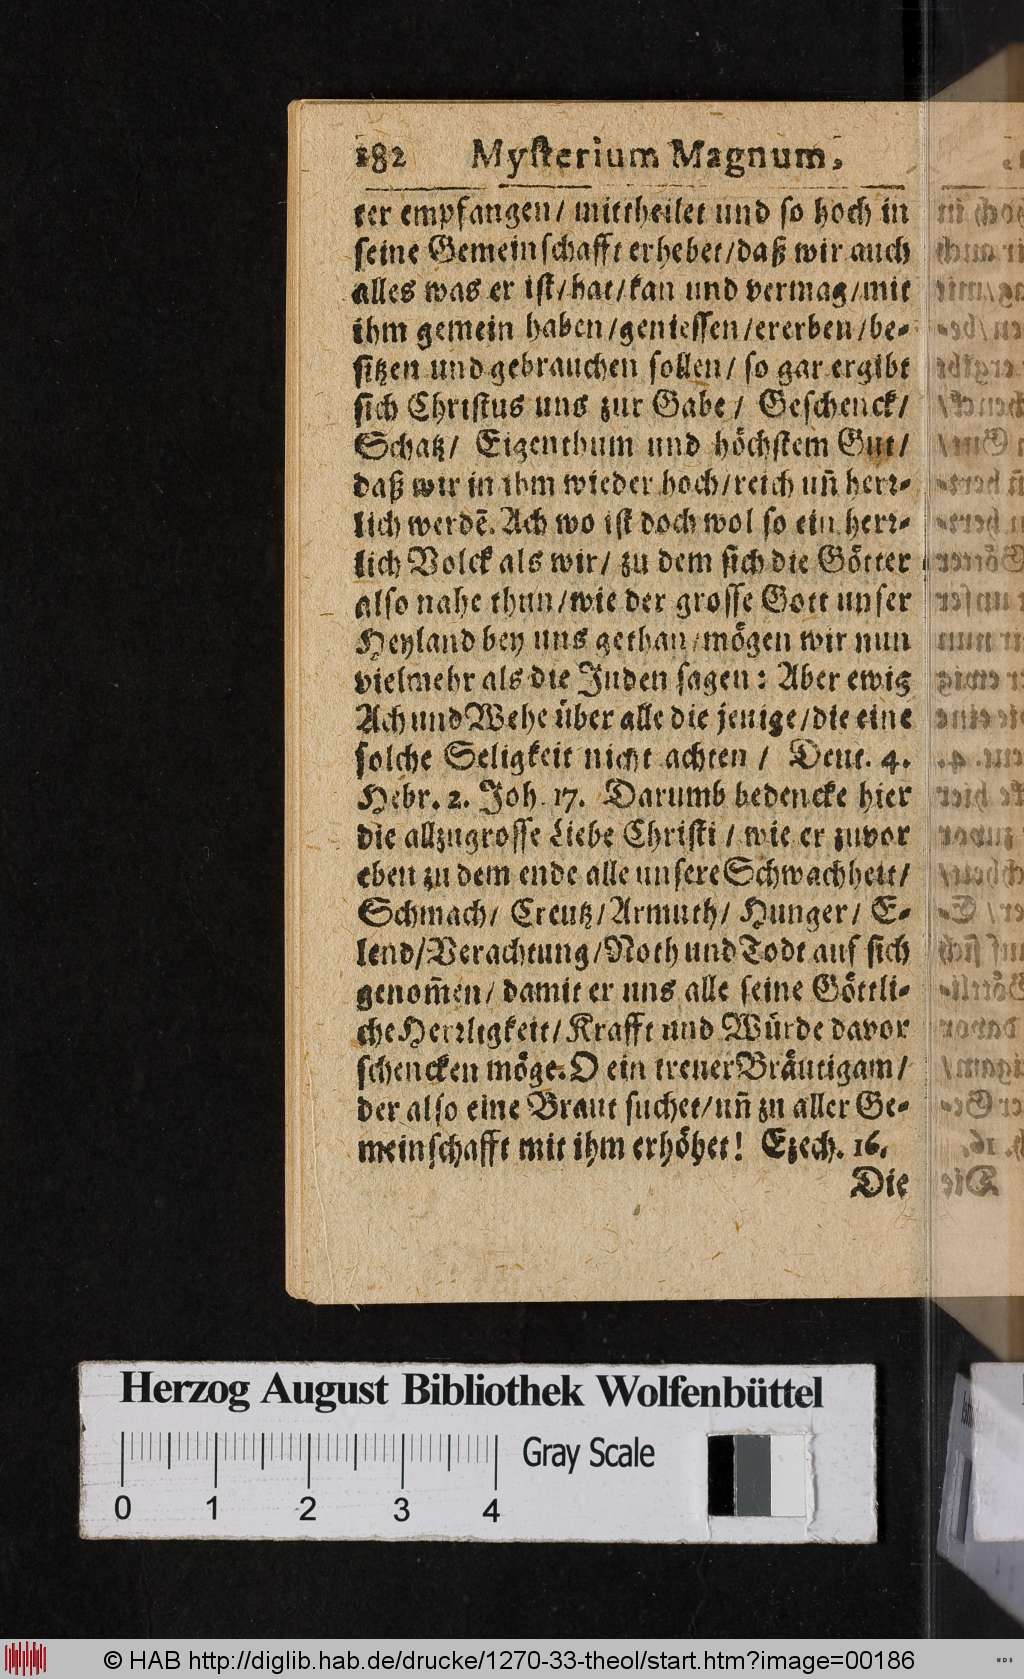 182 Mysterium Magnum,
ter empfangen/ mittheilet und so hoch in
seine Gemeinschafft erhebet/daß wir auch
alles was er ist/hat/kan und vermag/mit
ihm gemein haben/geniessen/ererben/be-
sitzen und gebrauchen sollen/ so gar ergibt
sich Christus uns zur Gabe/ Geschenck/
Schatz/ Eigenthum und höchstem Gut/
daß wir in ihm wieder hoch/reich uñ herr-
lich werdẽ. Ach wo ist doch wol so ein herr-
lich Volck als wir/ zu dem sich die Götter
also nahe thun/wie der grosse Gott unser
Heyland bey uns gethan/mögen wir nun
vielmehr als die Juden sagen: Aber ewig
Ach und Wehe über alle die jenige/die eine
solche Seligkeit nicht achten/ Deut. 4.
Hebr. 2. Joh. 17. Darumb bedencke hier
die allzugrosse Liebe Christi/ wie er zuvor
eben zu dem ende alle unsere Schwachheit/
Schmach/ Creutz/Armuth/ Hunger/ E-
lend/Verachtung/Noth und Todt auf sich
genom̃en/ damit er uns alle seine Göttli-
che Herrligkeit/Krafft und Würde davor
schencken möge. O ein treuer Bräutigam/
der also eine Braut suchet/uñ zu aller Ge-
meinschafft mit ihm erhöhet! Ezech. 16.
Die
Herzog August Bibliothek Wolfenbüttel
Gray Scale
0 1 2 3 4
© HAB http://diglib.hab.de/drucke/1270-33-theol/start.htm?image=00186